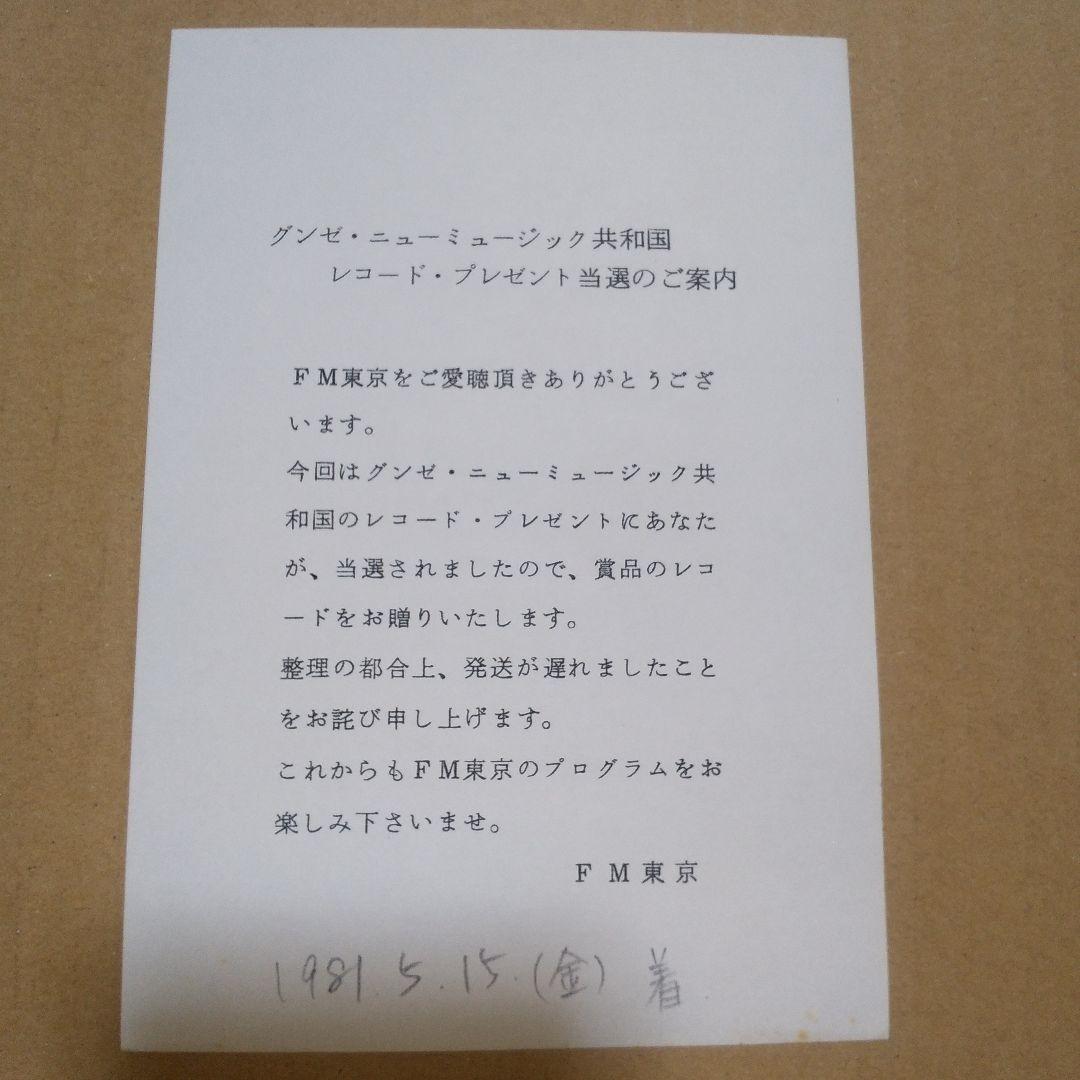 グンゼ・ニューミュージック共和国
レコード・プレゼント当選のご案内
FM東京をご愛聴頂きありがとうござ
います。
今回はグンゼ・ニューミュージック共
和国のレコード・プレゼントにあなた
が、当選されましたので、賞品のレコ
ードをお贈りいたします。
整理の都合上、発送が遅れましたこと
をお詫び申し上げます。
これからもFM東京のプログラムをお
楽しみ下さいませ。
FM東京
1981.5.15.(金) 着